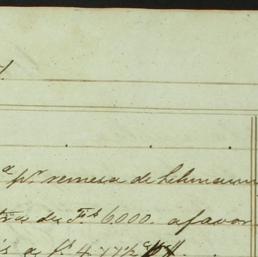 a pr. remesa de Lehmann
tra de Fs 6,000. afavor
a fs. 4.77½